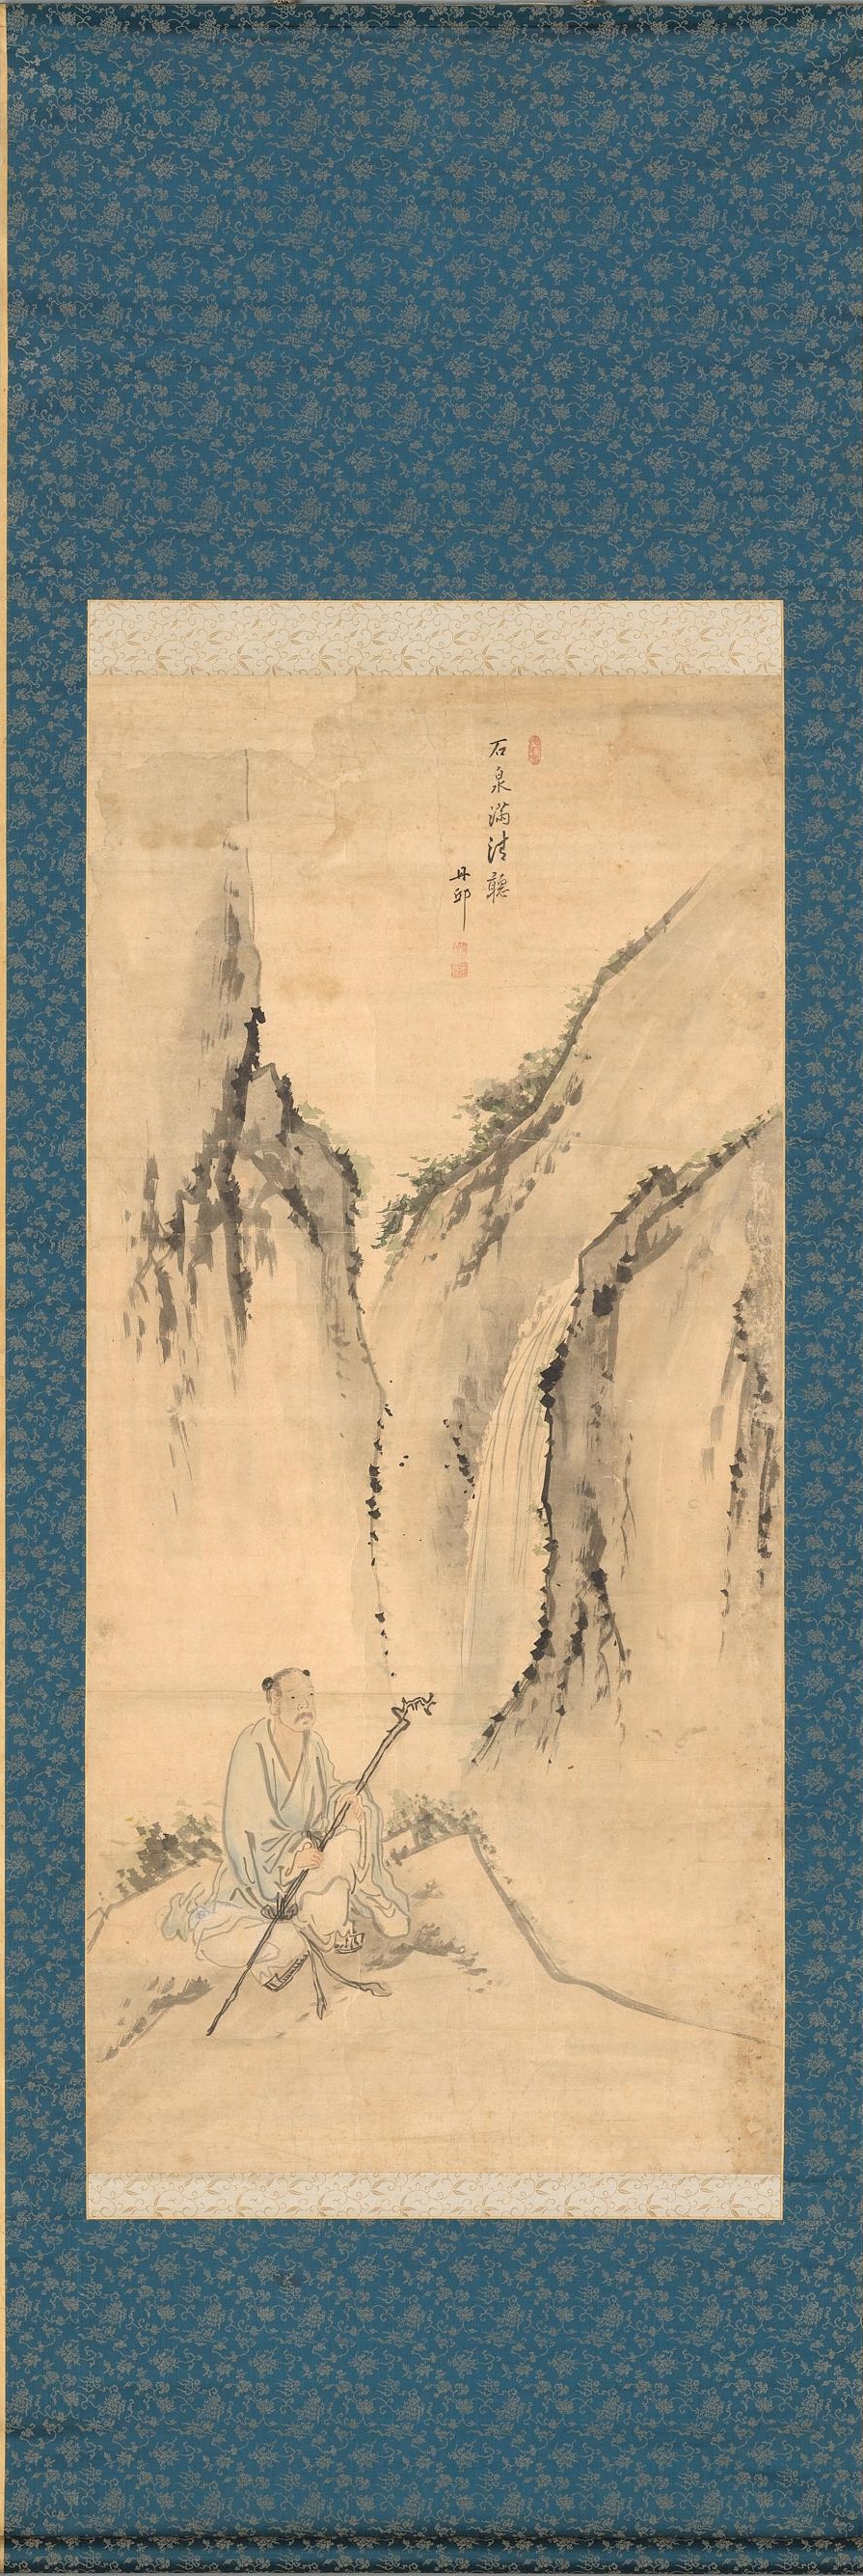 石泉滿清聽
丹邱